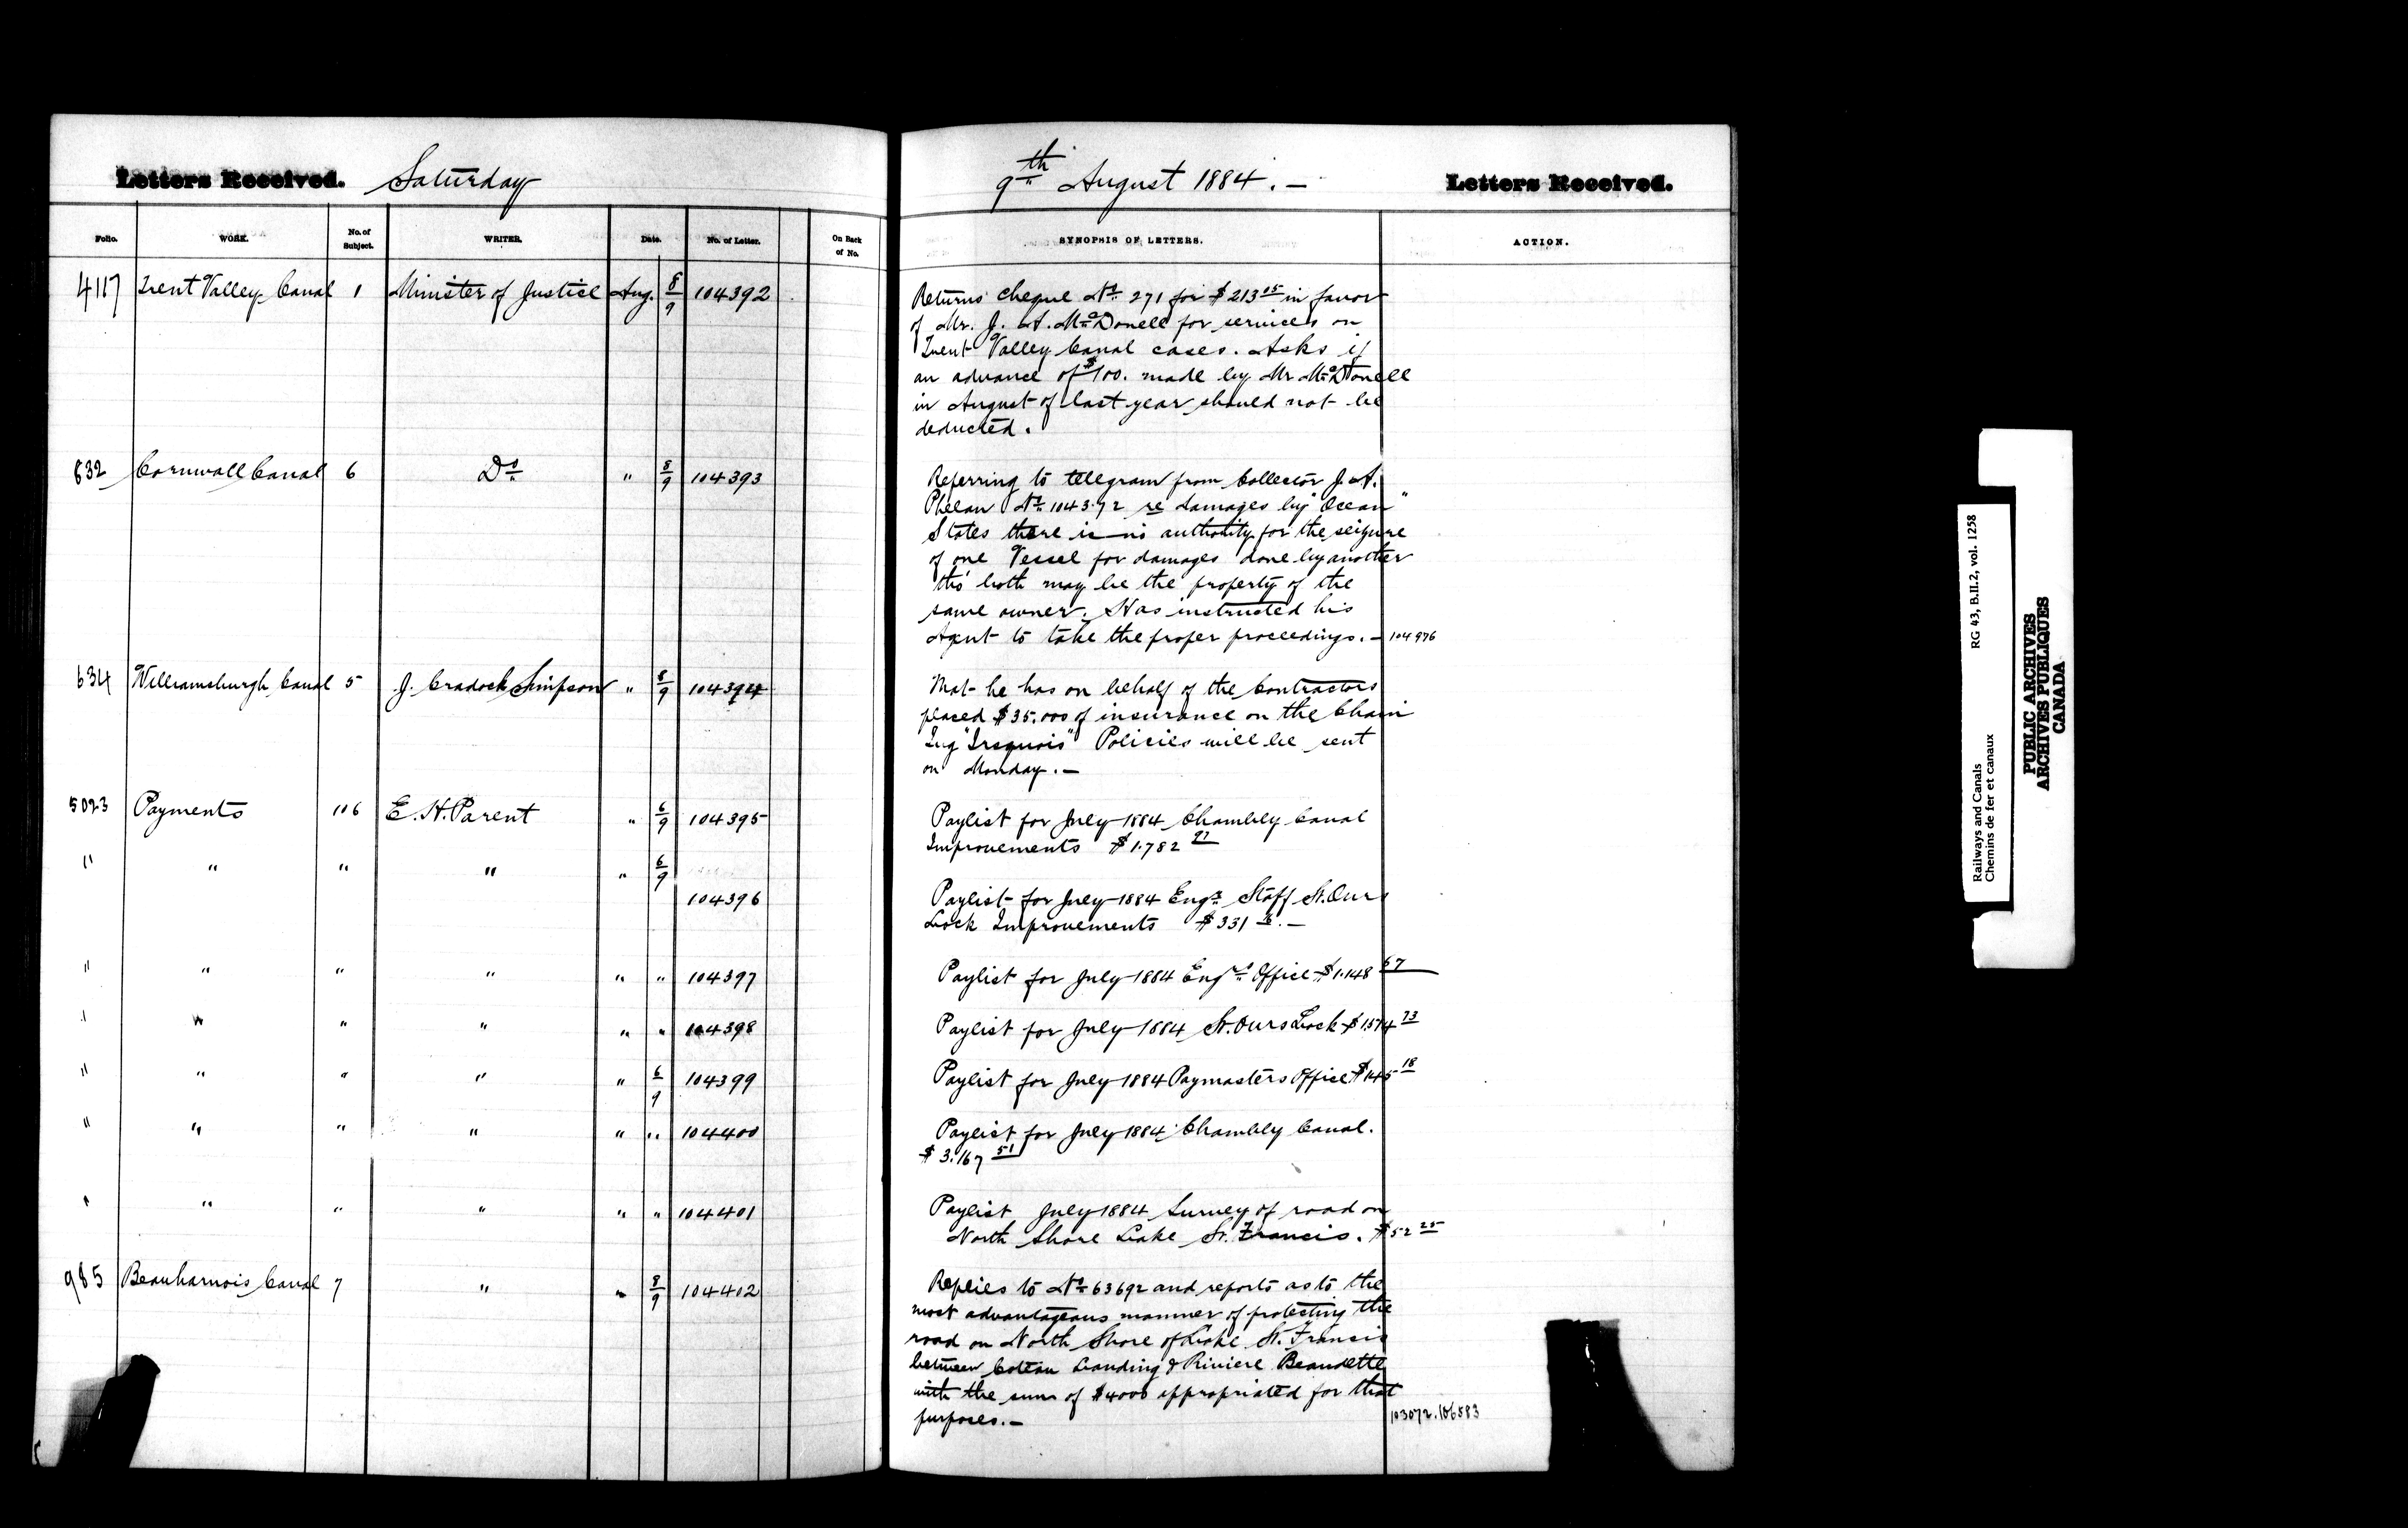 Letters Received. Saturday
9th August 1884. —
Letters Received.
Folio. WORK. No. of Subject. WRITER. Date. No. of Letter. On Back of No.
SYNOPSIS OF LETTERS. ACTION.
4117 Trent Valley Canal 1 Minister of Justice Aug. 8/9 104392
Returns cheque No. 271 for $213 05 in favor
of Mr. J. A. McDonell for services on
Trent Valley Canal cases. Asks if
an advance of $100. made by Mr McDonell
in August of last year should not be
deducted.
832 Cornwall Canal 6 Do " 8/9 104393
Referring to telegram from Collector J. A.
Phelan No. 104372 re damages by "Ocean"
States there is no authority for the seizure
of one Vessel for damages done by another
tho' both may be the property of the
same owner. Has instructed his
Agent to take the proper proceedings. — 104976
634 Williamsburgh Canal 5 J. Cradock Simpson " 8/9 104394
That he has on behalf of the Contractors
placed $35.000 of insurance on the Chain
Tug "Iroquois" Policies will be sent
on Monday. —
5023 Payments 106 E. H. Parent " 6/9 104395
Paylist for July 1884 Chambly Canal
Improvements $1.782
" " " " " 6/9
104396
Paylist for July 1884 Engrs Staff St. Ours
Lock Improvements $331 —
" " " " " " 104397
Paylist for July 1884 Engrs Office $1.148 67
" " " " " " 104398
Paylist for July 1884 St. Ours Lock 73
" " " " " 6/9 104399
Paylist for July 1884 Paymasters Office $145 18
" " " " " " 104400
Paylist for July 1884 Chambly Canal.
$3.167 51
" " " " " " 104401
Paylist July 1884 Survey of road on
North Shore Lake St. Francis. $52 25
985 Beauharnois Canal 7 " " 8/9 104402
Replies to No. 63692 and reports as to the
most advantageous manner of protecting the
road on North Shore of Lake St. Francis
between Coteau Landing & Riviere Beaudette
with the sum of $4000 appropriated for that
purposes. —
103072. 106583
Railways and Canals RG 43, B.II.2, vol. 1258
Chemins de fer et canaux
PUBLIC ARCHIVES
ARCHIVES PUBLIQUES
CANADA